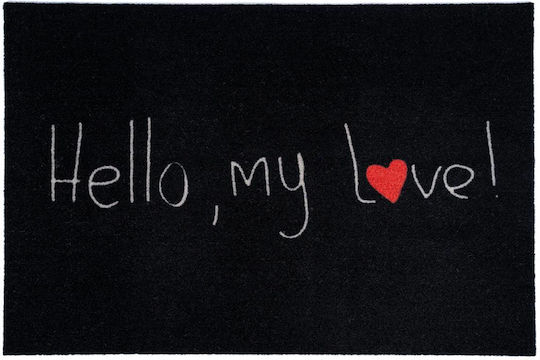 Hello, my love!